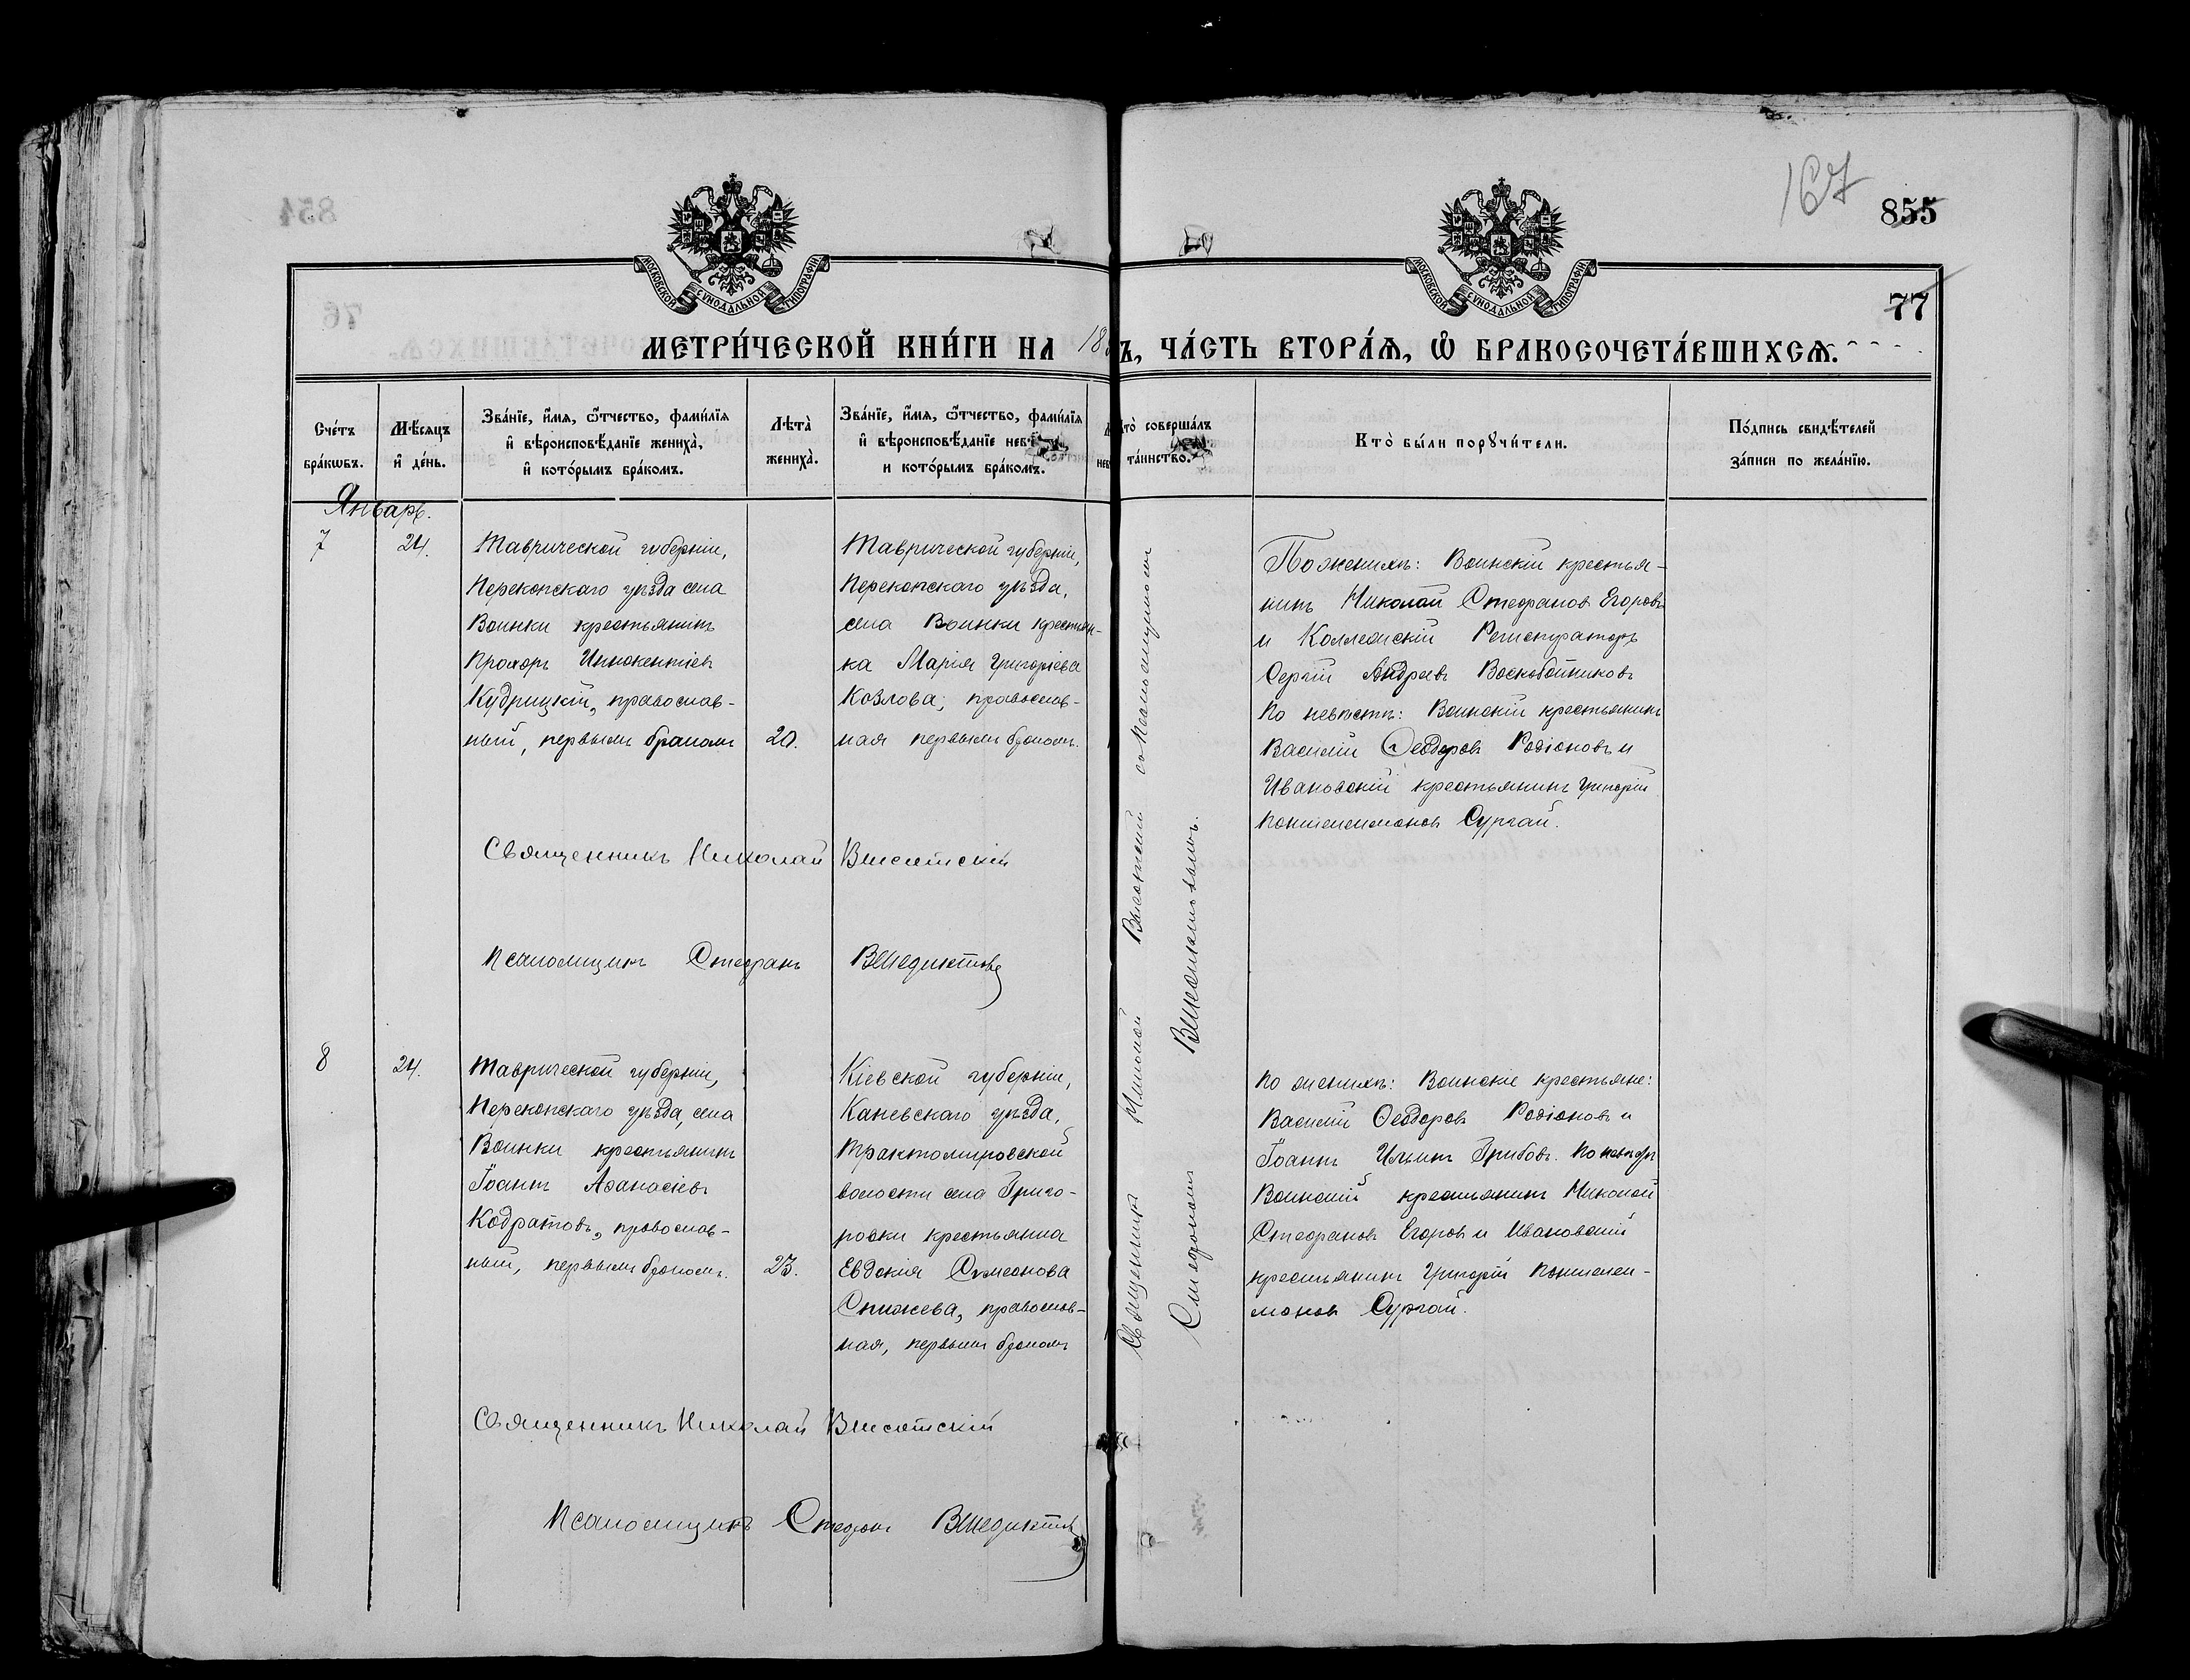 167
855
77
МОСКОВСКОЙ СѴНОДАЛЬНОЙ ТИПОГРАФІИ
МОСКОВСКОЙ СѴНОДАЛЬНОЙ ТИПОГРАФІИ
МЕТРИ́ЧЕСКОЙ КНИ́ГИ НА 18 Ъ, ЧА́СТЬ ВТОРА́Ѧ, Ѽ БРАКОСОЧЕТА́ВШИХСѦ.
Сче́тъ бра́кѡвъ.
Мѣ́сяцъ и҆ де́нь.
Зва́нїе, и҆́мя, ѻ҆́тчество, фами́лїя
и҆ вѣроисповѣ́данїе жениха̀,
и҆ кото́рымъ бра́комъ.
Лѣта̀ жениха̀.
Зва́нїе, и҆́мя, ѻ҆́тчество, фами́лїя
и҆ вѣроисповѣ́данїе невѣ
и кото́рымъ бра́комъ.
то̀ соверша́лъ
та́инство.
Кто̀ бы́ли порꙋчи́тели.
По́дпись свидѣ́телей
за́писи по жела́нїю.
Январь.
7
24.
Таврической губерніи,
Перекопскаго уѣзда села
Воинки крестьянинъ
Прохоръ Иннокентіевъ
Кудрицкій, православ-
ный, первымъ бракомъ
20.
Таврической губерніи,
Перекопскаго уѣзда,
села Воинки крестьян-
ка Марія Григоріева
Козлова; православ-
ная первымъ бракомъ.
Священникъ Николай Высотскій со псаломщикомъ
Стефаномъ Венедиктовымъ.
По женихѣ: Воинскій крестья-
нинъ Николай Стефановъ Егоровъ
и Коллежскій Регистраторъ
Сергій Андреевъ Воскобойниковъ
По невѣстѣ: Воинскій крестьянинъ
Василій Ѳеодоровъ Родіоновъ и
Ивановскій крестьянинъ Григорій
Сургай.
Священникъ Николай Высотскій
Псаломщикъ Стефанъ Венедиктовъ
8
24.
Таврической губерніи,
Перекопскаго уѣзда, села
Воинки крестьянинъ
Іоаннъ Аѳанасіевъ
Кодратовъ, православ-
ный, первымъ бракомъ.
23.
Кіевской губерніи,
Каневскаго уѣзда,
Трактомировской
волости села Григо-
ровки крестьянка
Евдокія Симеонова
православ-
ная, первымъ бракомъ
По женихѣ: Воинскіе крестьяне:
Василій Ѳеодоровъ Родіоновъ и
Іоаннъ Ильинъ Грибовъ. По невѣстѣ
Воинскій крестьянинъ Николай
Стефановъ Егоровъ и Ивановскій
крестьянинъ Григорій
Сургай.
Священникъ Николай Высотскій
Псаломщикъ Стефанъ Венедиктовъ